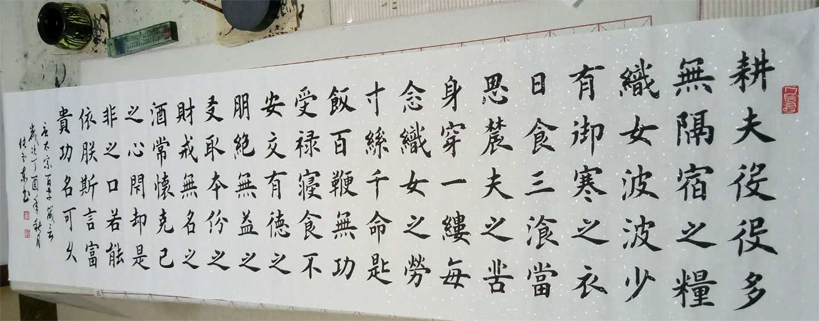 耕夫役役多
無隔宿之糧
織女波波少
有御寒之衣
日食三飡當
思農夫之苦
身穿一縷每
念織女之勞
寸絲千命匙
飯百鞭無功
受禄寝食不
安交有德之
朋絶無益之
友取本份之
財戒無名之
酒常懷克己
之心閉却是
非之口若能
依朕斯言富
貴功名可久
唐太宗百字箴言
歲次丁酉年秋月